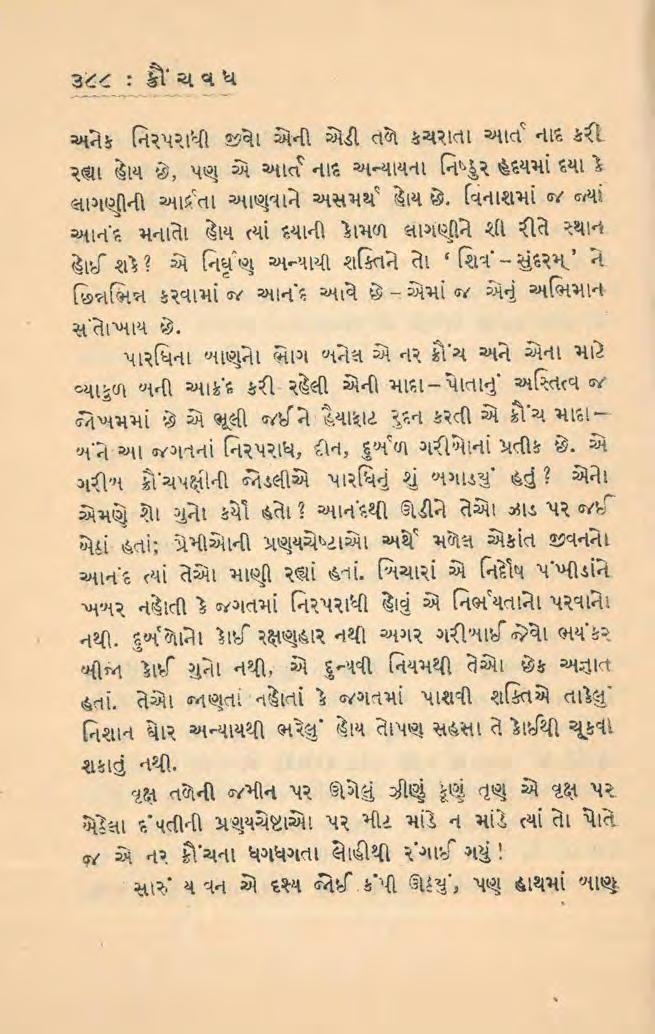 ૩૮૮ : ક્રૌંચવધ
અનેક નિરપરાધી જીવો એની એડી તળે કચરાતા આર્તનાદ કરી
રહ્યા હોય છે, પણ એ આર્તનાદ અન્યાયના નિષ્ઠુર હૃદયમાં દયા કે
લાગણીની આર્દ્રતા આણવાને અસમર્થ હોય છે. વિનાશમાં જ જ્યાં
આનંદ મનાતો હોય ત્યાં દયાની કોમળ લાગણીને શી રીતે સ્થાન
હોઈ શકે? એ નિર્ઘૃણ અન્યાયી શક્તિને તો ‘શિવં – સુંદરમ્’ ને
છિન્નભિન્ન કરવામાં જ આનંદ આવે છે – એમાં જ એનું અભિમાન
સંતોખાય છે.
પારધિના બાણનો ભોગ બનેલ એ નર ક્રૌંચ અને એના માટે
વ્યાકુળ બની આક્રંદ કરી રહેલી એની માદા – પોતાનું અસ્તિત્વ જ
જોખમમાં છે એ ભૂલી જઈને હૈયાફાટ રુદન કરતી એ ક્રૌંચ માદા –
બંને આ જગતનાં નિરપરાધ, દીન, દુર્બળ ગરીબોનાં પ્રતીક છે. એ
ગરીબ ક્રૌંચપક્ષીની જોડલીએ પારધિનું શું બગાડયું હતું? એનો
એમણે શો ગુનો કર્યો હતો? આનંદથી ઊડીને તેઓ ઝાડ પર જઈ
બેઠાં હતાં; પ્રેમીઓની પ્રણયચેષ્ટાઓ અર્થે મળેલ એકાંત જીવનનો
આનંદ ત્યાં તેઓ માણી રહ્યાં હતાં. બિચારાં એ નિર્દોષ પંખીડાંને
ખબર નહોતી કે જગતમાં નિરપરાધી હોવું એ નિર્ભયતાનો પરવાનો
નથી. દુર્બળોનો કોઈ રક્ષણહાર નથી અગર ગરીબાઈ જેવો ભયંકર
બીજો કોઈ ગુનો નથી, એ દુન્યવી નિયમથી તેઓ છેક અજ્ઞાત
હતાં. તેઓ જાણતાં નહોતાં કે જગતમાં પાશવી શક્તિએ તાકેલું
નિશાન ઘોર અન્યાયથી ભરેલું હોય તોપણ સહસા તે કોઈથી ચૂકવી
શકાતું નથી.
વૃક્ષ તળેની જમીન પર ઊગેલું ઝીણું કૂણું તૃણ એ વૃક્ષ પર
બેઠેલા દંપતીની પ્રણયચેષ્ટાઓ પર મીટ માંડે ન માંડે ત્યાં તો પોતે
જ એ નર ક્રૌંચના ધગધગતા લોહીથી રંગાઈ ગયું!
સારું ય વન એ દૃશ્ય જોઈ કંપી ઊઠયું, પણ હાથમાં બાણ